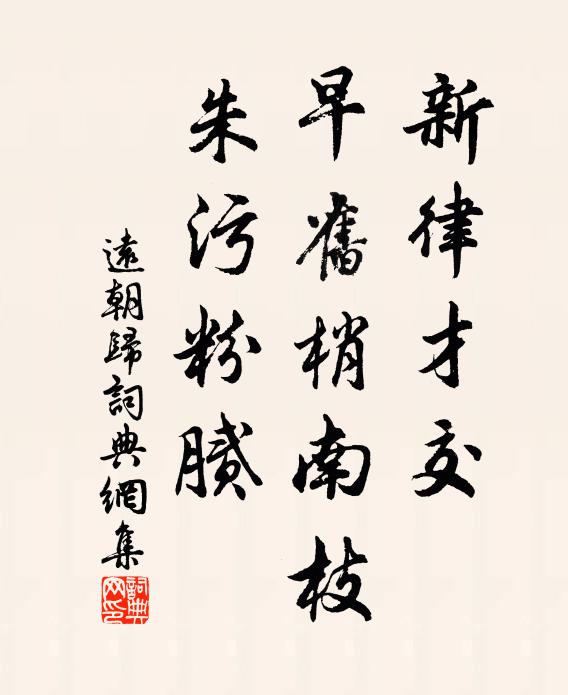 新律才交
早舊梢南枝
朱污粉膩
遠朝歸詞典網集
詞典網印